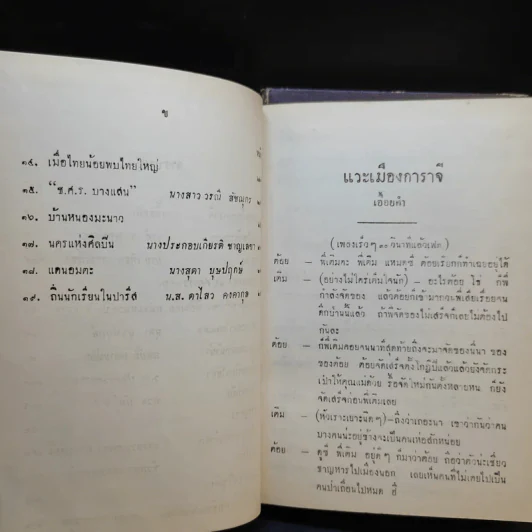 ข
๑๔. เมื่อไทยน้อยพบไทยใหญ่
๑๕. "ช.ศ.ร. บางแสน" นางสาว วรณี
๑๖. บ้านหนองมะนาว
๑๗. นครแห่งศิลปิน นางประกอบเกียรติ
๑๘. แดนอมตะ นางสุดา บุษปฤกษ์
๑๙. ถิ่นนักเรียนในปารีส น.ส. ดาไลว คงคากุล
แวะเมืองการาจี
เอื้อยคำ
(เพลงเร็วๆ ๑๐ วินาทีแล้วเฟด)
ต้อย – พี่เติมคะ พี่เติม แหมดูซี ต้อยเรียกก็ทำเฉยอยู่ได้
เติม – (อย่างไม่ใคร่เต็มใจนัก) – อะไรต้อย ไฮ่ ก็พี่
กำลังจัดของ แล้วคอยกี่เช้ามากวนพี่เสียเรื่อยจน
ดึกป่านนี้แล้ว ถ้าพี่จัดของไม่เสร็จก็เลยไม่ต้องไป
กันละ
ต้อย – ก็พี่เติมคอยจนนาทีสุดท้ายถึงจะมาจัดของนี่นา ของ
ของต้อย ต้อยจัดเสร็จตั้งโกฏิปีแล้วแล้วยังจัดกระ
เป๋าให้คุณแม่ด้วย รื้อจัดใหม่กันตั้งหลายหน ก็ยัง
จัดเสร็จก่อนพี่เติมเลย
เติม – (หัวเราะเยาะนิดๆ) – ถึงว่าเถอะนา เขาว่ากันว่าคน
บางคนน่ะอยู่ข้างจะเป็นคนเห่อสักหน่อย
ต้อย – ดูซี พี่เติม อยู่ดีๆ ก็มาว่าต้อย ถือว่าตัวน่ะเชี่ยว
ชาญหารไปเมืองนอก เลยเห็นคนที่ไม่เคยไปเป็น
คนป่าเถื่อนไปหมด ฮึ